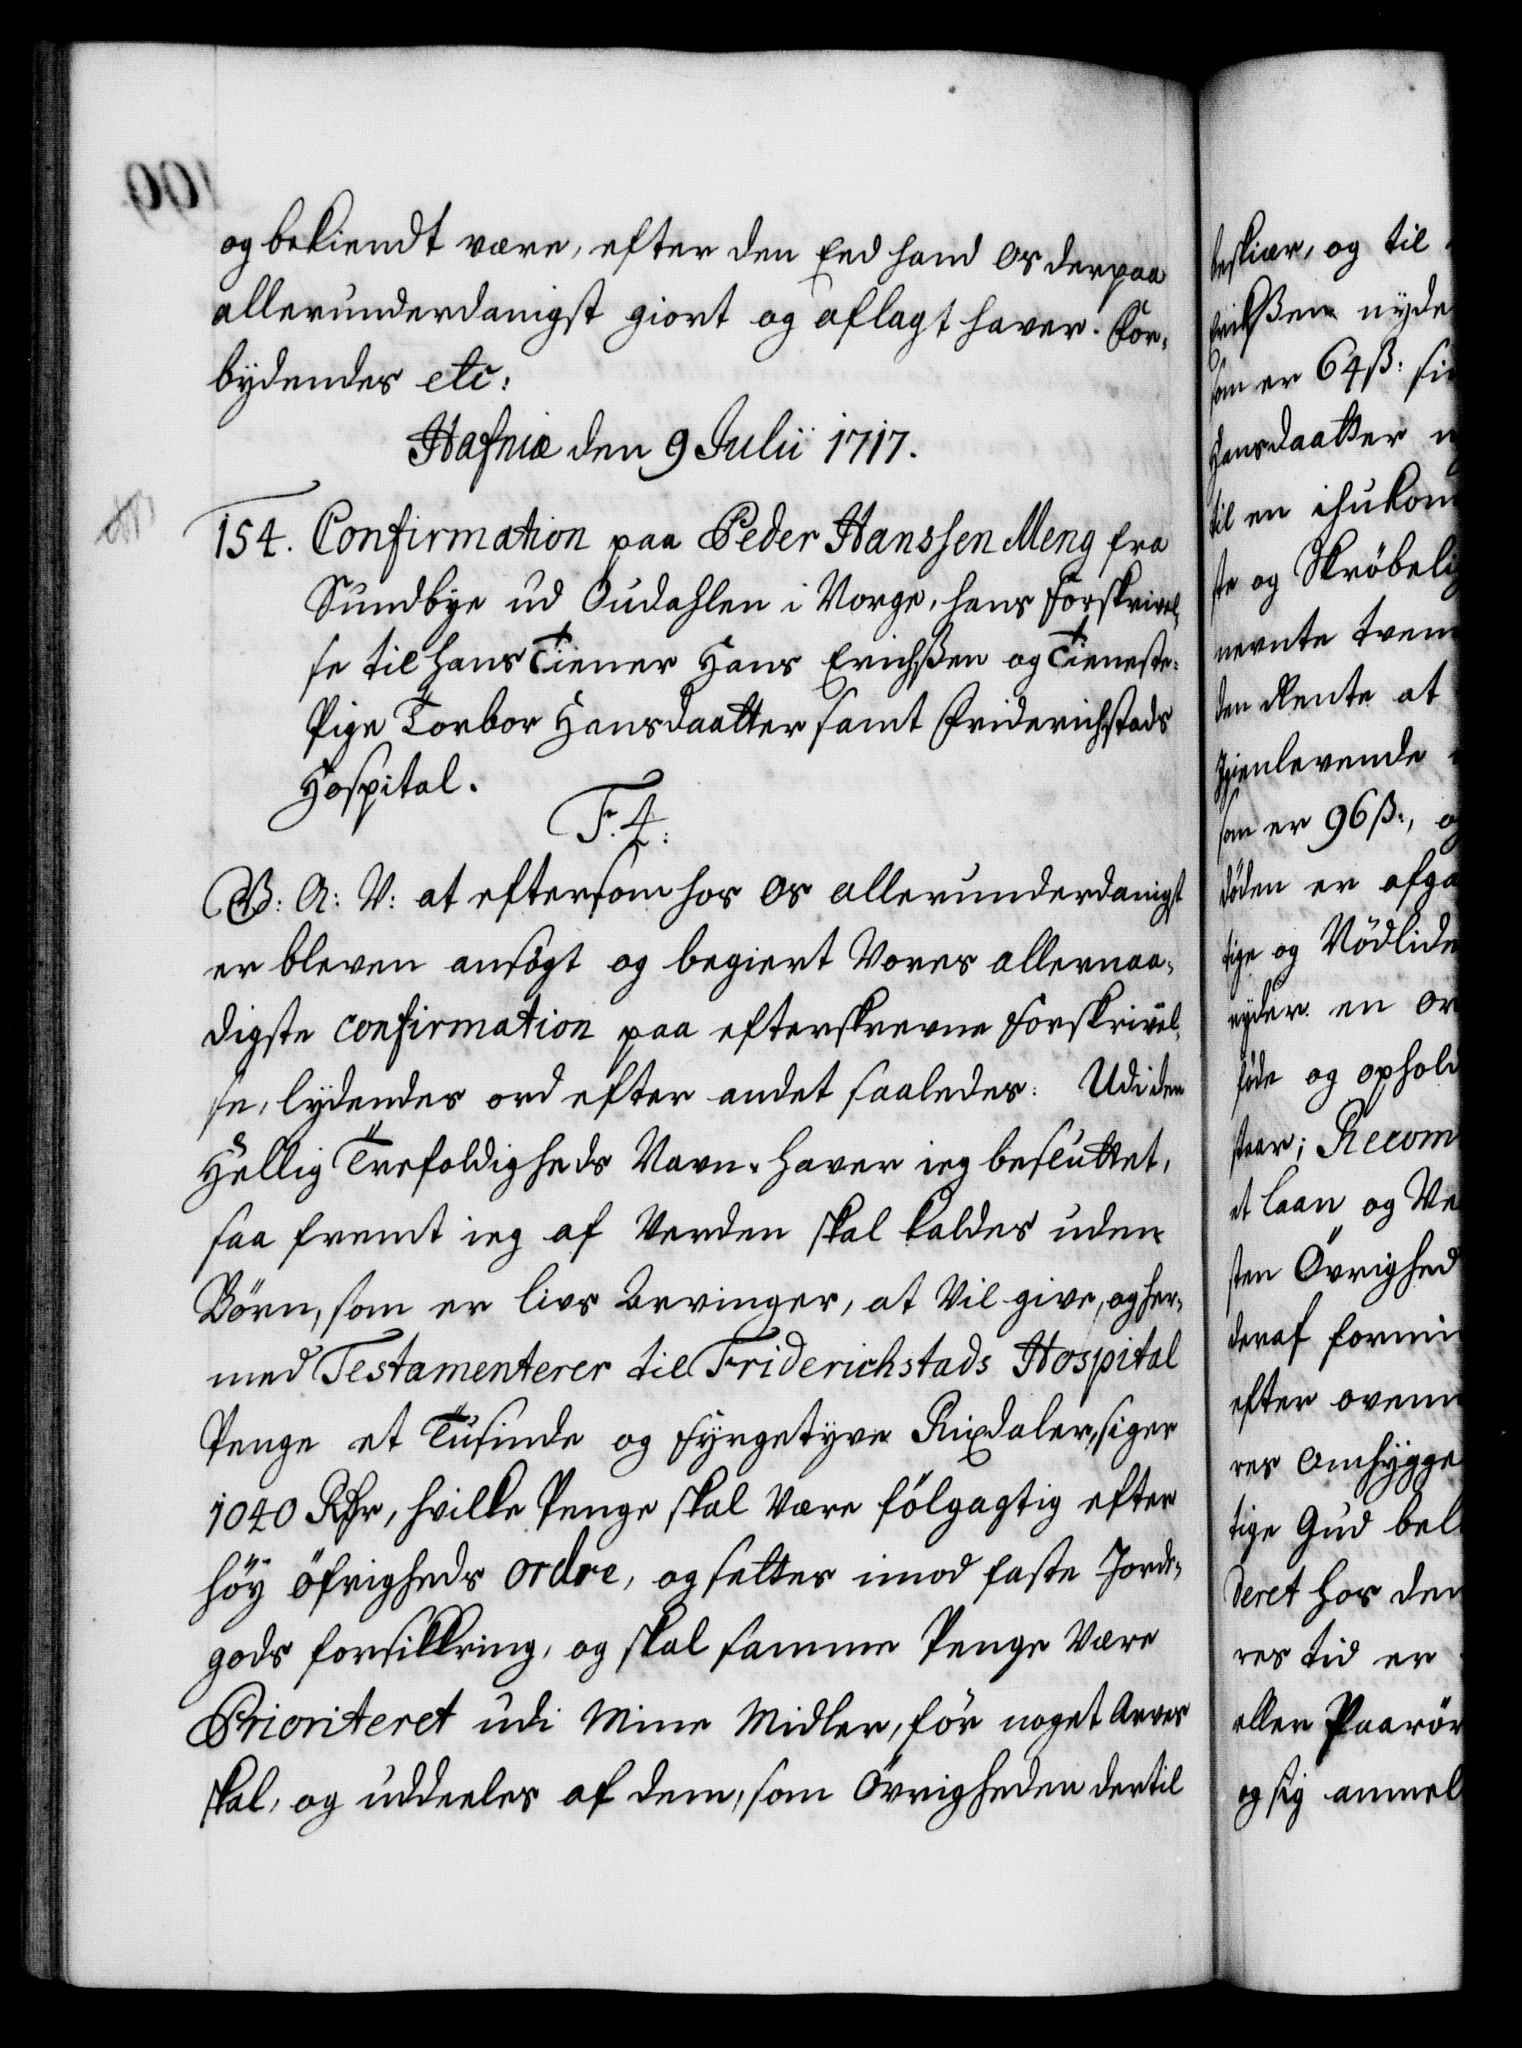 og bekiendt være, efter den Eed hand os derpaa
allerunderdanigst giort og aflagt haver. For-
bydendes etc:
Hafniæ den 9 Julii 1717.
154. Confirmation paa Peder Hanssen Meng fra
Sundbye ud Oudahlen i Norge, hans forskrivel-
se til hans Tiener Hans Erichßen og Tieneste-
Pige Torbor Hansdaatter samt Friderichstads
Hospital.
F. 4.
W: A: V: at eftersom hos os allerunderdanigst
er bleven ansögt og begiert Vores allernaa-
digste confirmation paa efterskrevne forskrivel-
se, lydendes ord efter andet saaledes: Udi den
Hellig Trefoldigheds Navn, haver ieg besluttet,
saa fremt ieg af Verden skal kaldes uden
Börn, som er livs Arvinger, at Vil give, og her-
med Testamenterer til Friderichstads Hospital
Penge et Tusinde og fyrgetyve Rixdaler, siger
1040 Rdr, hvilke Penge skal Være fölgagtig efter
höy öfrigheds ordre, og settes imod faste Jorde-
gods forsikkring, og skal samme Penge Være
Prioriteret udi Mine Midler, för noget Arves
skal, og uddeeles af dem, som Övrigheden dertil
beskier, og til
Erichßen nyde
som er 64 ß:
Hansdaatter
til en
ste og Skröbelig
nevnte tvend
den Rente at
Igienlevende
som er 96 ß:,
döden er afga
tige og Nödlide
nyder en
föde og ophold
staar; Recom
et laan og Ve
sten Övrighed
deraf formin
efter ovenn
res omhygge
tige Gud bel
deret hos den
res tid er
eller Paarör
og sig anmel